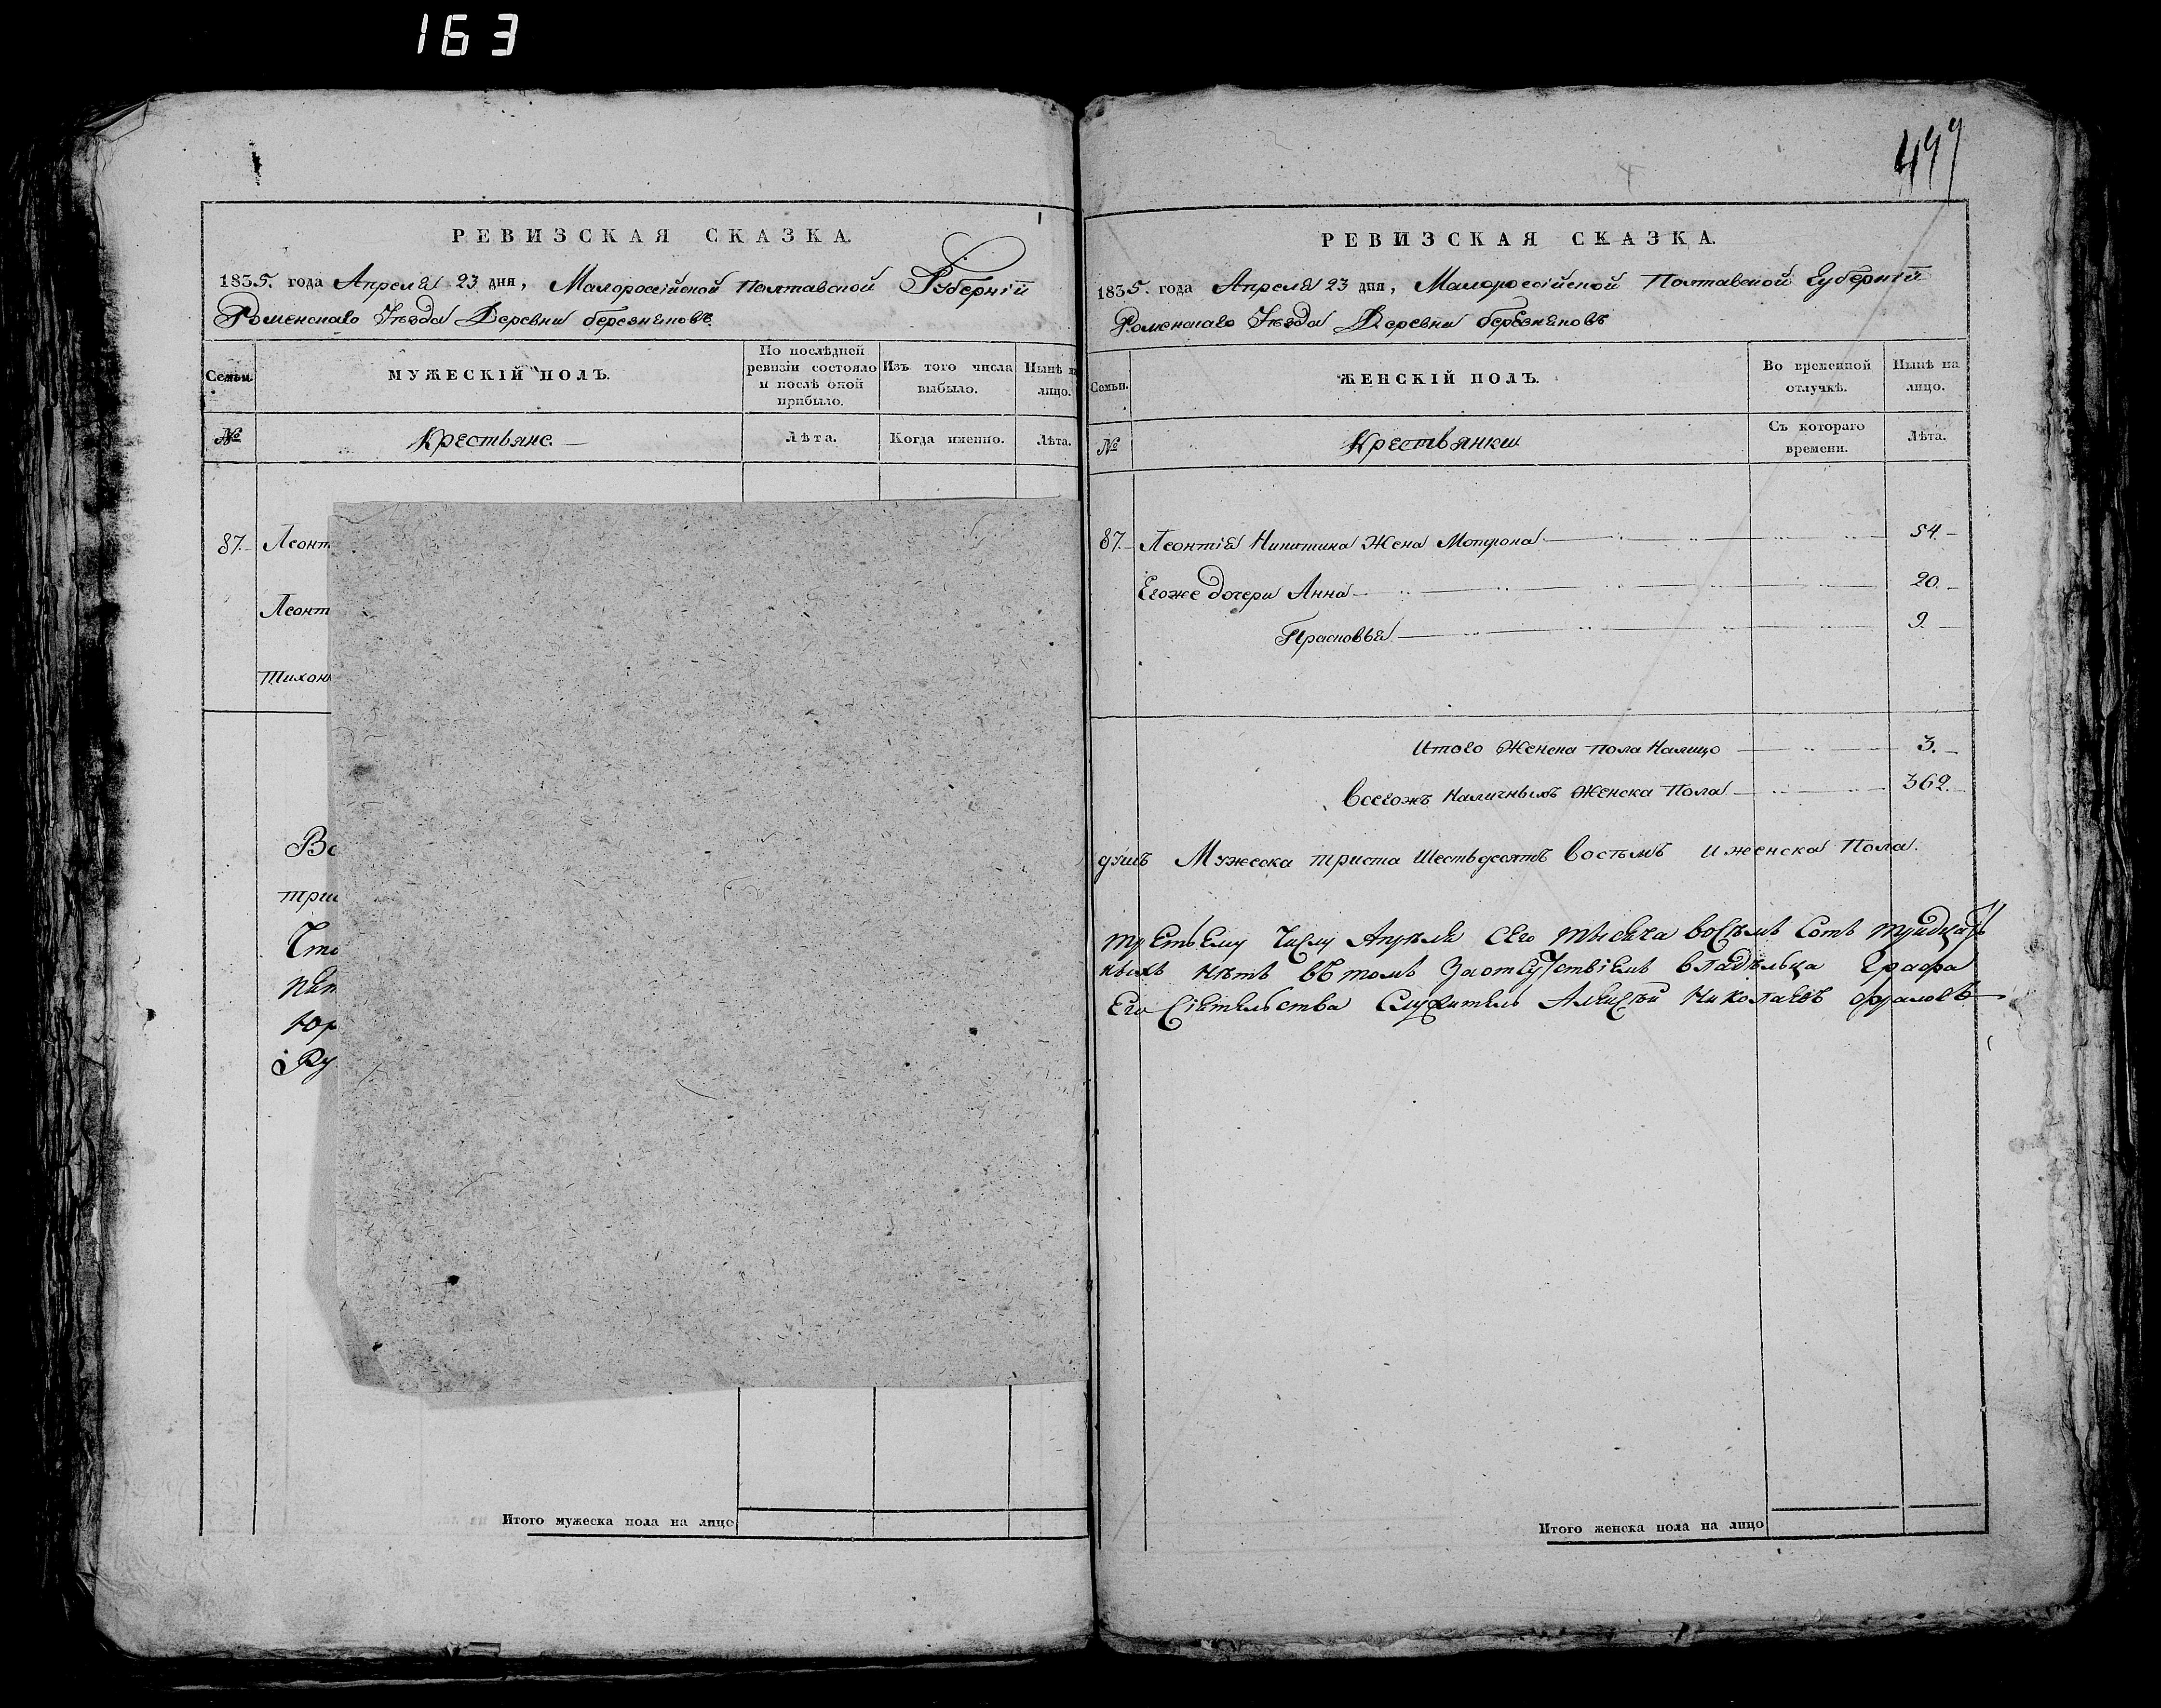 163
РЕВИЗСКАЯ СКАЗКА.
1835. года Апреля 23 дня, Малороссійской Полтавской Губерніи
Роменскаго Уезда Деревни березняковъ
Семьи.
МУЖЕСКІЙ ПОЛЪ.
По послѣдней ревизіи состояло и послѣ оной прибыло.
Изъ того числа выбыло.
Нынѣ на лицо.
№
Крестьяне.
Лѣта.
Когда именно.
Лѣта.
87. Леонт
Леонт
Тихон
Вс
три
Что
пят
Юр
Ру
Итого мужеска пола на лицо
499
РЕВИЗСКАЯ СКАЗКА.
1835. года Апреля 23 дня, Малороссійской Полтавской Губерніи
Роменскаго Уезда Деревни березняковъ
Семьи.
ЖЕНСКІЙ ПОЛЪ.
Во временной отлучкѣ.
Нынѣ на лицо.
№
Крестьянки
Съ котораго времени.
Лѣта.
87. Леонтія Никитина Жена Мотрона 54.
Егоже дочери Анна 20.
Прасковья 9
Итого Женска пола Налицо 3.
Всегожъ Наличныхъ Женска Пола 362.
душъ Мужеска триста Шестьдесятъ восьмъ и женска Пола.
третьему Числу Апреля сего тысяча восѣмъ сотъ тридцать
нѣтъ въ томъ За отсутствіемъ владѣльца Графа
Его Сіятельства Служитель Алексѣй Николаевъ
Итого женска пола на лицо